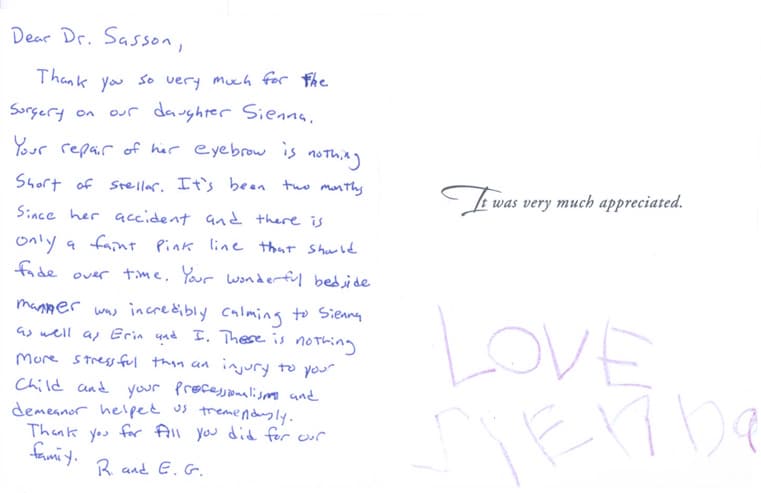 Dear Dr. Sasson,
Thank you so very much for the
surgery on our daughter Sienna.
Your repair of her eyebrow is nothing
short of stellar. It's been two months
since her accident and there is
only a faint pink line that should
fade over time. Your wonderful bedside
manner was incredibly calming to Sienna
as well as Erin and I. There is nothing
more stressful than an injury to your
child and your professionalism and
demeanor helped us tremendously.
Thank you for All you did for our
family.
R and E. G.
It was very much appreciated.
LOVE
SIENNA